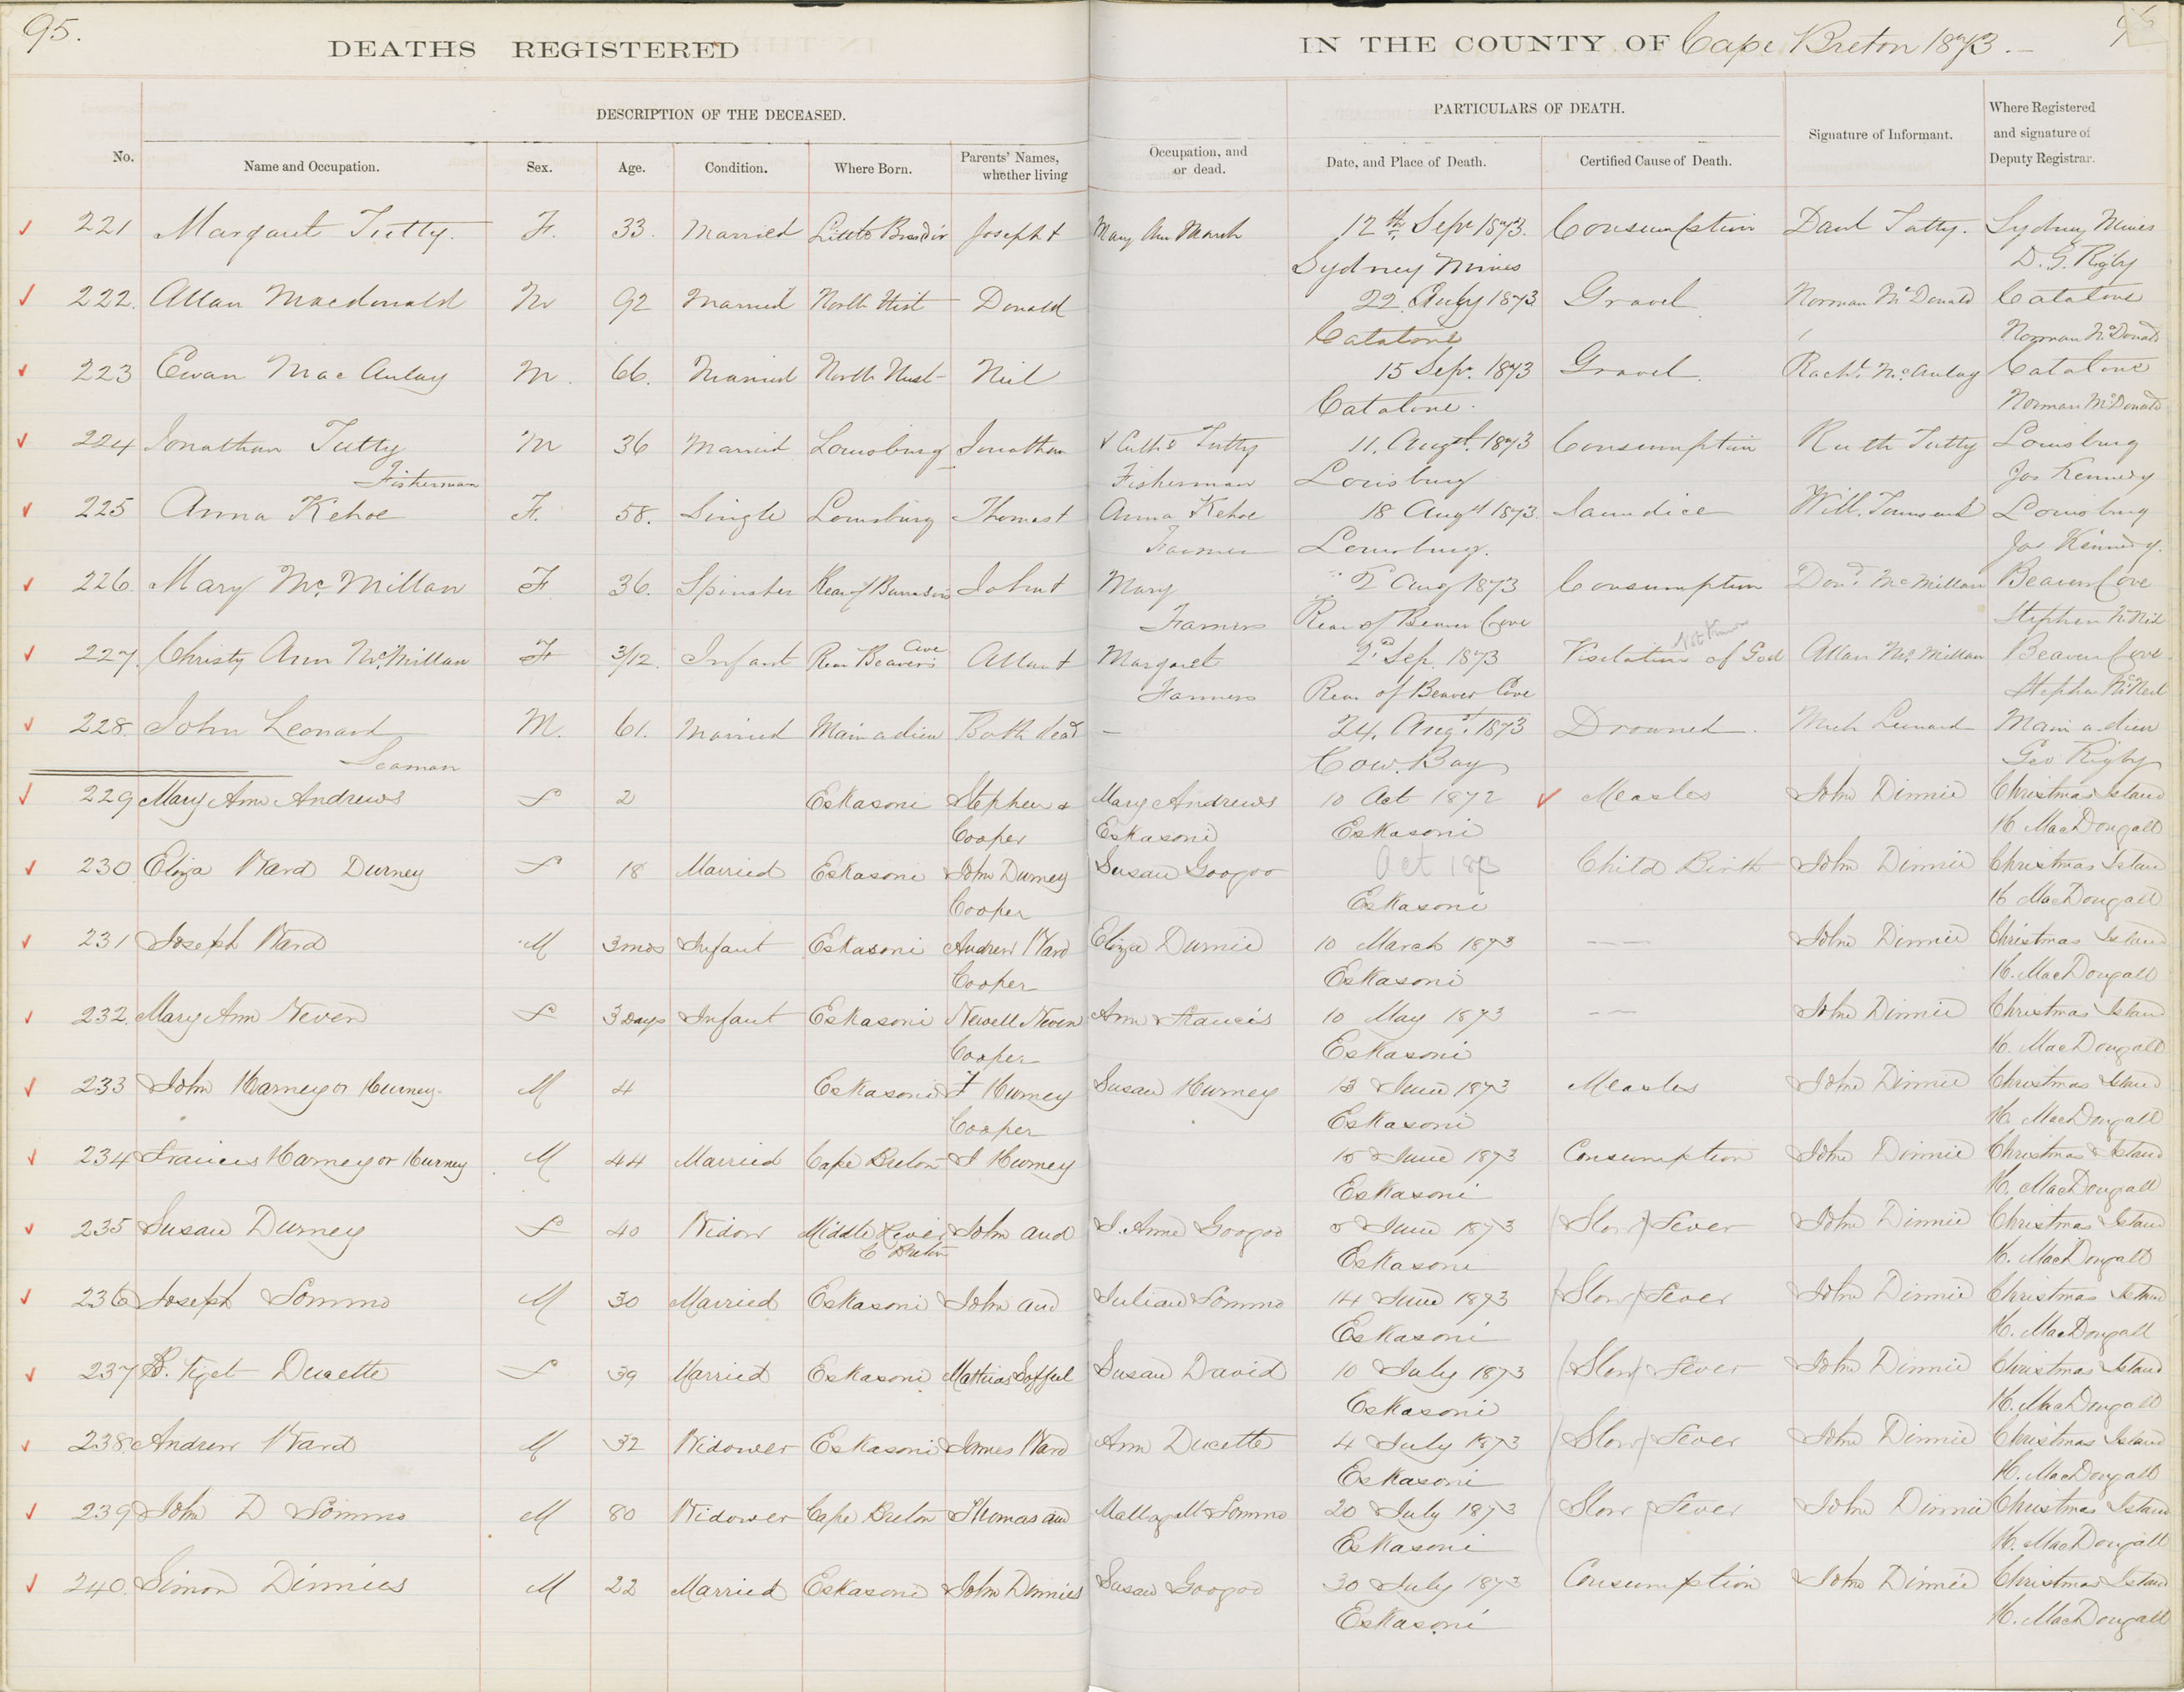 95.
DEATHS REGISTERED IN THE COUNTY OF Cape Breton 1873.
DESCRIPTION OF THE DECEASED. PARTICULARS OF DEATH.
No. Name and Occupation. Sex. Age. Condition. Where Born. Parents' Names, whether living Occupation, and or dead. Date, and Place of Death. Certified Cause of Death. Signature of Informant. Where Registered and signature of Deputy Registrar.
221 Margaret Tutty. F. 33. Married Little Bras dor Joseph & Mary Ann March 12th Sept 1873. Consumption Danl Tutty. Sydney Mines
Sydney Mines D. G. Rigby
222. Allan Macdonald M 92 Married North Uist Donald 22 July 1873 Gravel Norman McDonald Catalone
Catalone Norman McDonald
223 Ewan MacAulay M. 66. Married North Uist Neil 15 Sepr. 1873 Gravel Rachl. McAulay Catalone
Catalone. Norman McDonald
224 Jonathan Tutty M 36 Married Louisburg Jonathan & Cathe Tutty 11. Augt. 1873 Consumption Ruth Tutty Louisburg
Fisherman Fisherman Louisburg Jos Kennedy
225 Anna Kehoe F. 58. Single Louisburg Thomas & Anna Kehoe 18 Augt 1873. Jaundice Will. Townsend Louisburg
Farmer Louisburg. Jos Kennedy.
226. Mary McMillan F 36. Spinster Rear of Barrasois John & Mary 2 Aug 1873 Consumption Dond. McMillan Beaver Cove
Farmers Rear of Beaver Cove Stephen McNeil
227. Christy Ann McMillan F 3/12. Infant Rear Beaver's Cove Allan & Margaret 2d Sep. 1873 Visitation of God Not Known Allan McMillan Beaver Cove
Farmers Rear of Beaver Cove Stephen McNeil
228. John Leonard M. 61. Married Mainadieu Both dead — 24. Augt. 1873 Drowned. Mich Leonard Mainadieu
Seaman Cow. Bay Geo Rigby
229 Mary Ann Andrews F 2 Eskasoni Stephen & Mary Andrews 10 Oct 1872 Measles John Dinnie Christmas Island
Cooper Eskasoni Eskasoni H. MacDougall
230 Eliza Ward Durney F 18 Married Eskasoni John Durney Susan Googoo Oct 1873 Child Birth John Dinnie Christmas Island
Cooper Eskasoni H MacDougall
231 Joseph Ward M 3 mos Infant Eskasoni Andrew Ward Eliza Durnie 10 March 1873 — — John Dinnie Christmas Island
Cooper Eskasoni H. MacDougall
232. Mary Ann Neven F 3 Days Infant Eskasoni Newell Neven Ann Francis 10 May 1873 — — John Dinnie Christmas Island
Cooper Eskasoni H. MacDougall
233 John Harney or Hurney. M 4 Eskasoni F Hurney Susan Hurney 13 June 1873 Measles John Dinnie Christmas Island
Cooper Eskasoni H. MacDougall
234 Francis Harney or Hurney M 44 Married Cape Breton J Hurney 15 June 1873 Consumption John Dinnie Christmas Island
Eskasoni H. MacDougall
235 Susan Durney F 40 Widow Middle River John and S. Anne Googoo 5 June 1873 (Slow) Fever John Dinnie Christmas Island
C Breton Eskasoni H. MacDougall
236 Joseph Sommo M 30 Married Eskasoni John and Julian Sommo 14 June 1873 (Slow) Fever John Dinnie Christmas Island
Eskasoni H. MacDougall
237 Ducette F 39 Married Eskasoni Mathias Susan David 10 July 1873 (Slow) Fever John Dinnie Christmas Island
Eskasoni H. MacDougall
238. Andrew Ward M 32 Widower Eskasoni James Ward Ann Ducette 4 July 1873 (Slow) Fever John Dinnie Christmas Island
Eskasoni H. MacDougall
239 John D Sommo M 80 Widower Cape Breton Thomas and Sommo 20 July 1873 (Slow) Fever John Dinnie Christmas Island
Eskasoni H. MacDougall
240. Simon Dinnies M 22 Married Eskasoni John Dinnies Susan Googoo 30 July 1873 Consumption John Dinnie Christmas Island
Eskasoni H. MacDougall